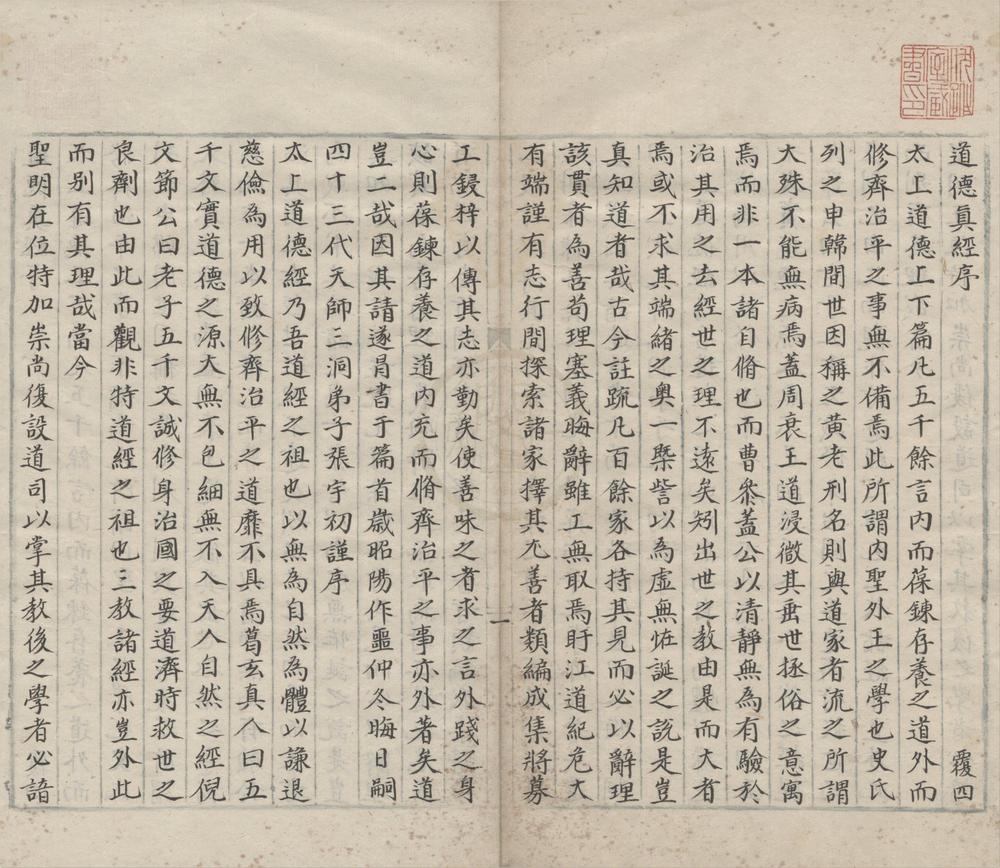 道德真經序 覆四
太上道德上下篇凡五千餘言内而葆鍊存養之道外而
修齊治平之事無不備焉此所謂内聖外王之學也史氏
列之申韓間世因稱之黄老刑名則與道家者流之所謂
大殊不能無病焉蓋周衰王道浸微其垂世拯俗之意寓
焉而非一本諸自脩也而曹叅蓋公以清靜無為有驗於
治其用之去經世之理不遠矣矧出世之教由是而大者
焉或不求其端緒之奥一槩訾以為虛無恠誕之說是豈
真知道者哉古今註䟽凡百餘家各持其見而必以辭理
該貫者為善苟理塞義晦辭雖工無取焉盱江道紀危大
有端謹有志行間探索諸家擇其尤善者類編成集將募
工鋟梓以傳其志亦勤矣使善味之者求之言外踐之身
心則葆鍊存養之道内充而脩齊治平之事亦外著矣道
豈二哉因其請遂冐書于篇首歲昭陽作噩仲冬晦日嗣
四十三代天師三洞弟子張宇初謹序
太上道德經乃吾道經之祖也以無為自然為體以謙退
慈儉為用以致修齊治平之道靡不具焉葛玄真人曰五
千文實道德之源大無不包細無不入天人自然之經倪
文節公曰老子五千文誠修身治國之要道濟時救世之
良劑也由此而觀非特道經之祖也三教諸經亦豈外此
而别有其理哉當今
聖明在位特加崇尚復設道司以掌其教後之學者必諳